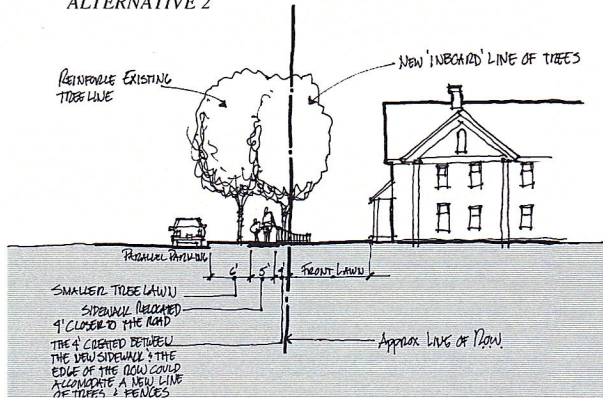 ALTERNATIVE 2
REINFORCE EXISTING
TREE LINE
NEW 'INBOARD' LINE OF TREES
PARALLEL PARKING
6' 5' 4' FRONT LAWN
SMALLER TREE LAWN
SIDEWALK RELOCATED
4' CLOSER TO THE ROAD
THE 4' CREATED BETWEEN
THE NEW SIDEWALK & THE
EDGE OF THE ROW COULD
ACCOMODATE A NEW LINE
OF TREES & FENCES
APPROX LINE OF ROW.